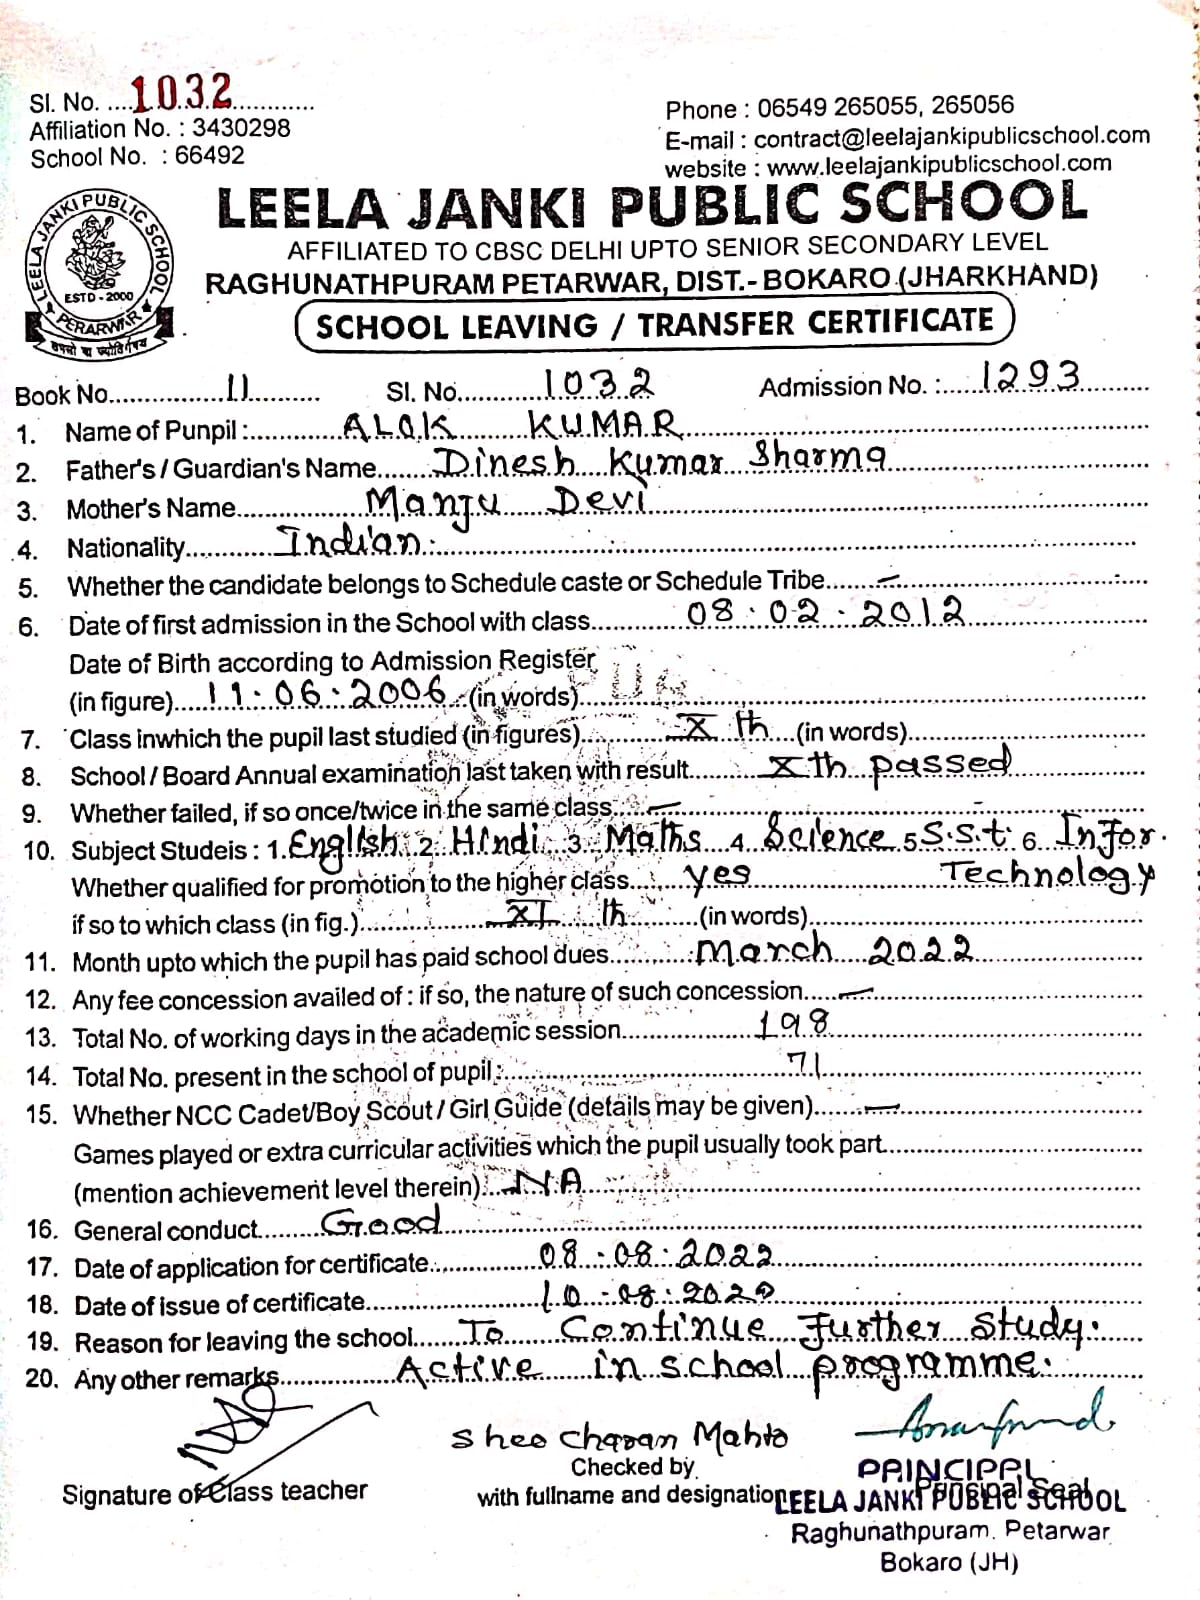 Sl. No. ....1032............
Affiliation No. : 3430298
School No. : 66492
Phone : 06549 265055, 265056
E-mail : contract@leelajankipublicschool.com
website : www.leelajankipublicschool.com
LEELA JANKI PUBLIC SCHOOL
ESTD - 2000
PERARWAR
तमसो मा ज्योतिर्गमय
LEELA JANKI PUBLIC SCHOOL
AFFILIATED TO CBSC DELHI UPTO SENIOR SECONDARY LEVEL
RAGHUNATHPURAM PETARWAR, DIST.- BOKARO (JHARKHAND)
SCHOOL LEAVING / TRANSFER CERTIFICATE
Book No. 11 Sl. No. 1032 Admission No. : 1293
1. Name of Punpil : ALOK KUMAR
2. Father's / Guardian's Name Dinesh Kumar Sharma
3. Mother's Name Manju Devi
4. Nationality Indian.
5. Whether the candidate belongs to Schedule caste or Schedule Tribe —
6. Date of first admission in the School with class 08.02.2012
Date of Birth according to Admission Register
(in figure) 11.06.2006 (in words)
7. Class inwhich the pupil last studied (in figures) X th (in words)
8. School / Board Annual examination last taken with result Xth passed
9. Whether failed, if so once/twice in the same class —
10. Subject Studeis : 1. English 2 Hindi 3 Maths 4 Science 5 S.s.t. 6 Infor.
Technology
Whether qualified for promotion to the higher class yes
if so to which class (in fig.) XI th (in words)
11. Month upto which the pupil has paid school dues March 2022
12. Any fee concession availed of : if so, the nature of such concession —
13. Total No. of working days in the academic session 198
14. Total No. present in the school of pupil : 71
15. Whether NCC Cadet/Boy Scout / Girl Guide (details may be given) —
Games played or extra curricular activities which the pupil usually took part
(mention achievement level therein) NA
16. General conduct Good
17. Date of application for certificate 08.08.2022
18. Date of issue of certificate 10.08.2022
19. Reason for leaving the school To Continue Further Study.
20. Any other remarks Active in school programme.
Signature of Class teacher
Sheo Charan Mahto
Checked by
with fullname and designation
PRINCIPAL
Principal Seal
LEELA JANKI PUBLIC SCHOOL
Raghunathpuram, Petarwar
Bokaro (JH)